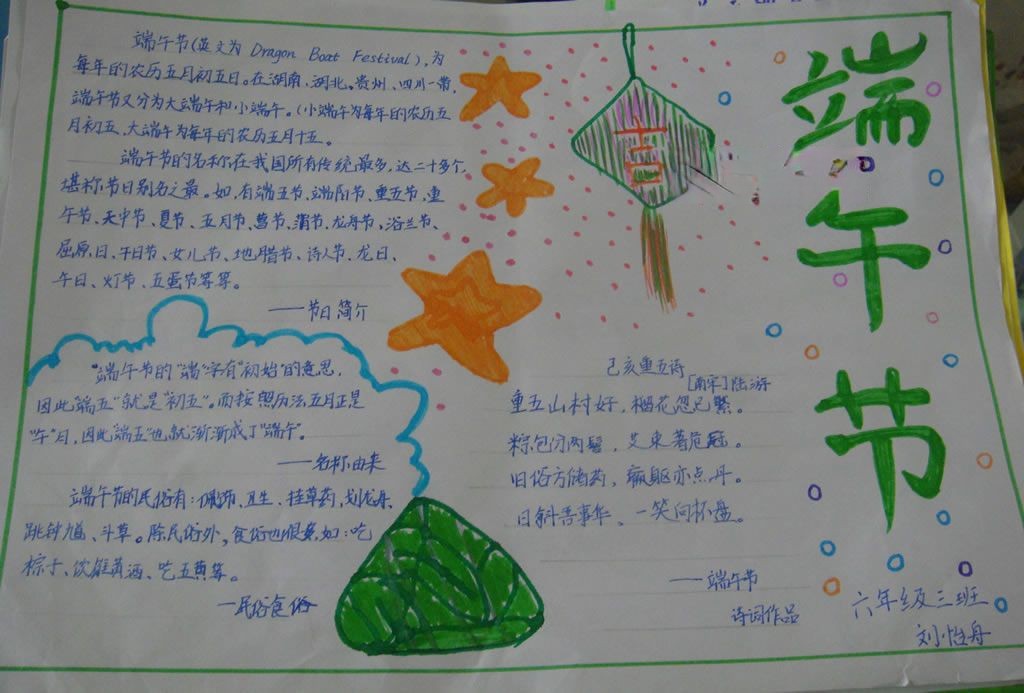 端午节
端午节(英文为 Dragon Boat Festival),为
每年的农历五月初五日。在湖南、湖北、贵州、四川一带,
端午节又分为大端午和小端午。(小端午为每年的农历五
月初五、大端午为每年的农历五月十五。
端午节的名称在我国所有传统最多,达二十多个,
堪称节日别名之最。如,有端五节、端阳节、重五节、重
午节、天中节、夏节、五月节、菖节、蒲节、龙舟节、浴兰节、
屈原日、午日节、女儿节、地腊节、诗人节、龙日、
午日、灯节、五蛋节等等。
——节日简介
“端午节的“端”字有“初始”的意思,
因此“端五”就是“初五”。而按照历法五月正是
“午”月,因此“端五”也就渐渐成了“端午”。
——名称由来
端午节的民俗有:卫生、挂草药、划龙舟、
跳钟馗、斗草。除民俗外,食俗也很多,如:吃
粽子、饮雄黄酒、吃五黄等。
—民俗食俗
己亥重五诗
[南宋]陆游
重五山村好,榴花忽已繁。
粽包分两髻,艾束著危冠。
旧俗方储药,羸躯亦点丹。
日斜吾事毕,一笑向杯盘。
——端午节
诗词作品
六年级三班
刘怡舟